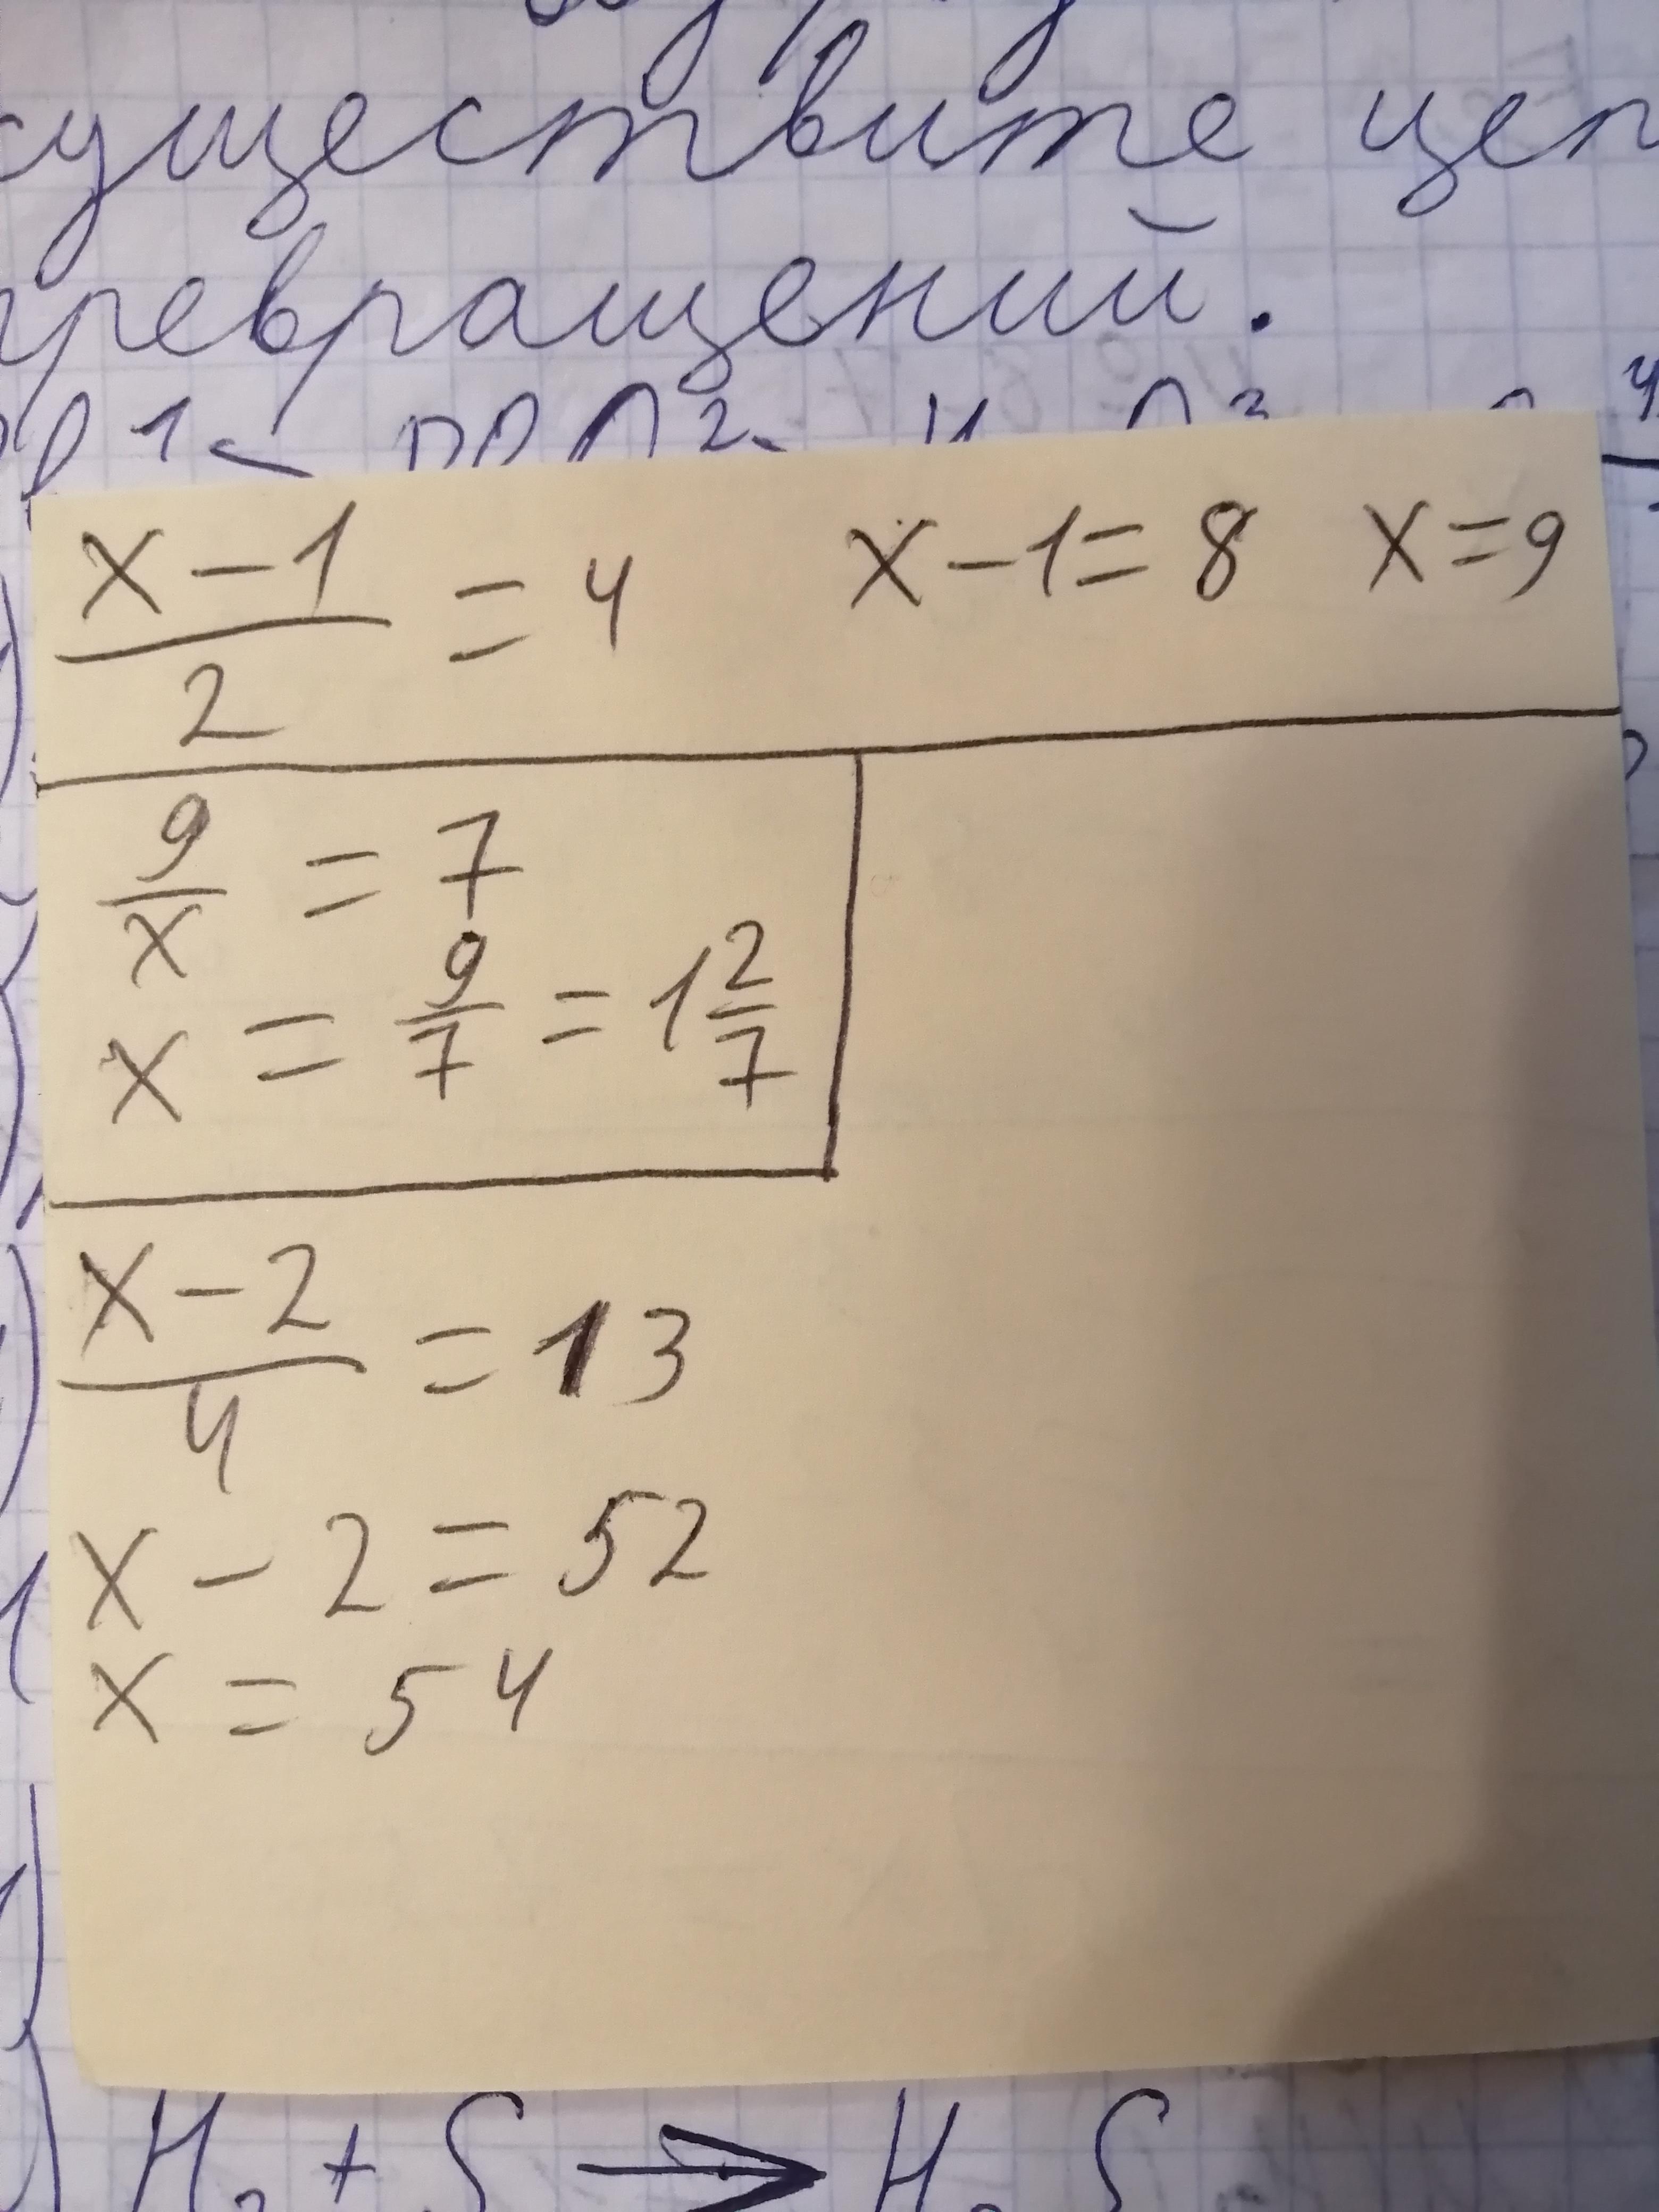 существите
превращений.
(x-1)/2 = 4 x-1=8 x=9
9/x = 7
x = 9/7 = 1 2/7
(x-2)/4 = 13
x-2=52
x = 54
H₂ + S → H₂S